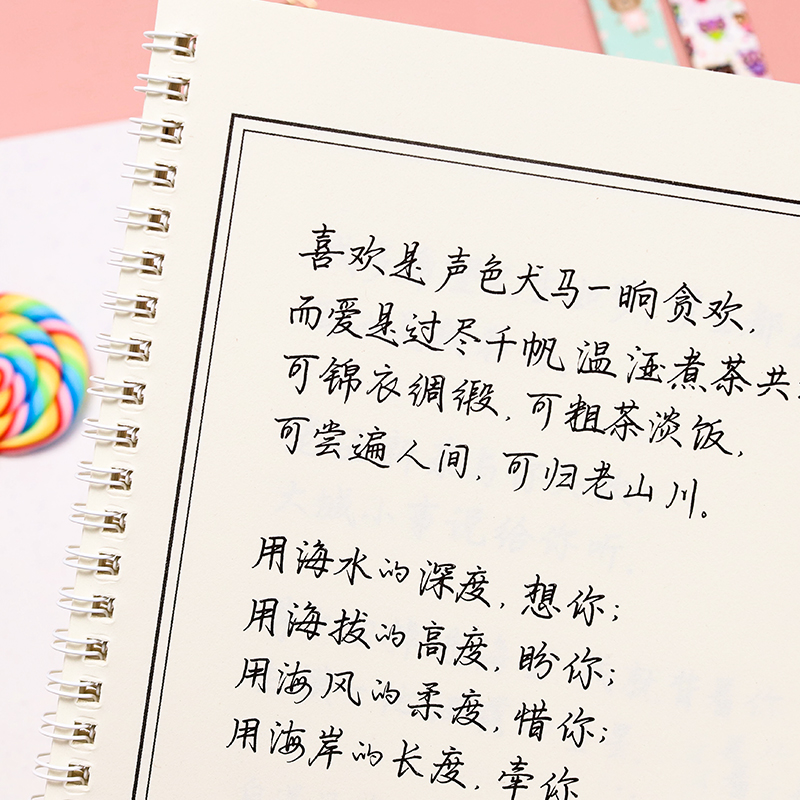 喜欢是声色犬马一晌贪欢,
而爱是过尽千帆温酒煮茶共
可锦衣绸缎,可粗茶淡饭,
可尝遍人间,可归老山川。
用海水的深度,想你;
用海拔的高度,盼你;
用海风的柔度,惜你;
用海岸的长度,牵你